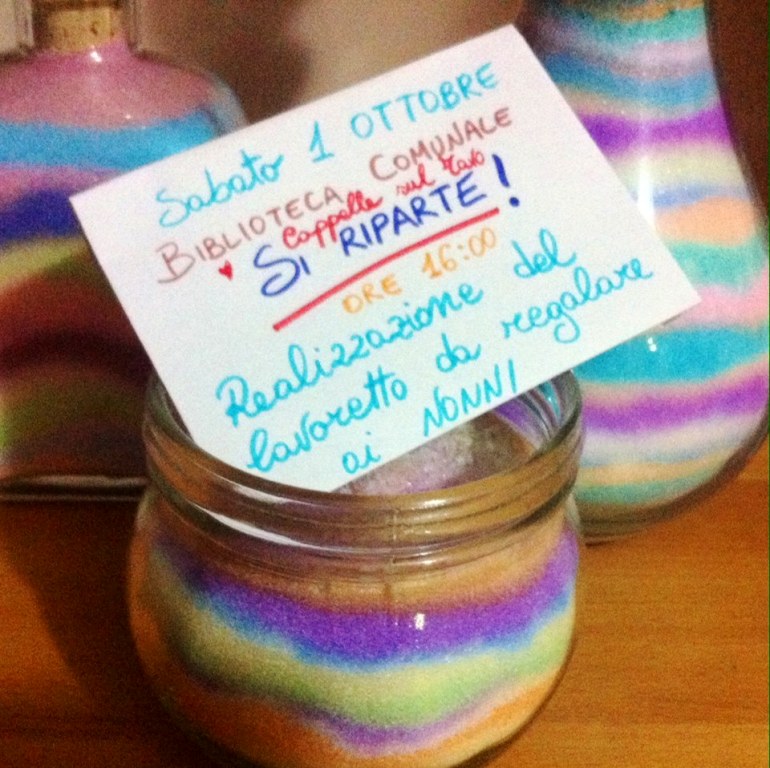 Sabato 1 OTTOBRE
BIBLIOTECA COMUNALE
Cappelle sul Tavo
SI RIPARTE!
ORE 16:00
Realizzazione del
lavoretto da regalare
ai NONNI